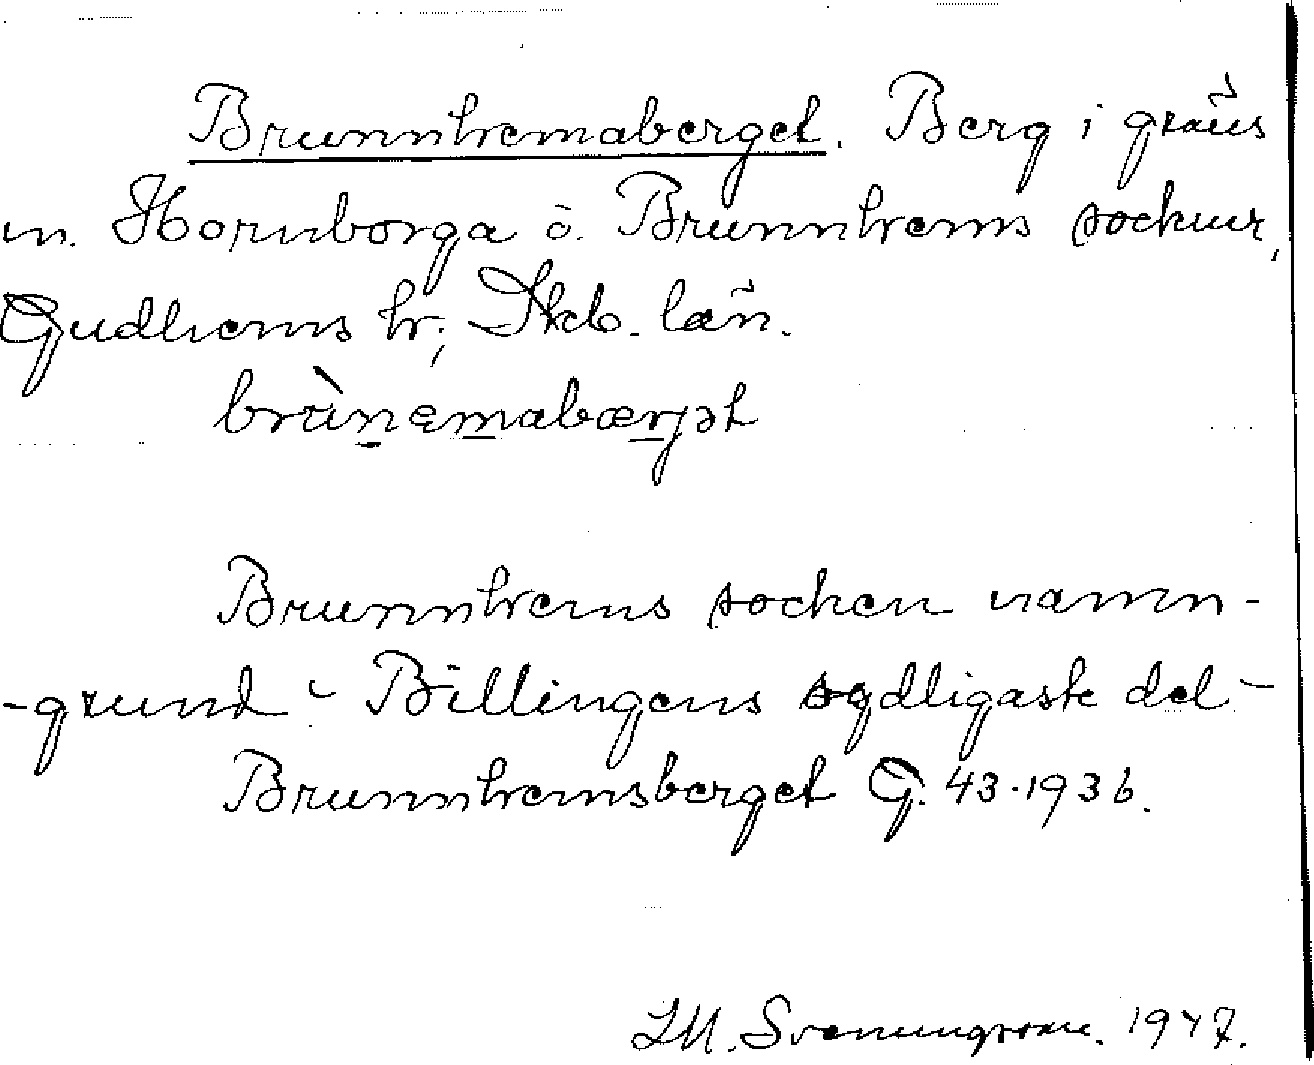 Brunnhemaberget. Berg i gräns
m. Hornborga o. Brunnhems socknar,
Gudhems hr; Skb. län.
brùnemabærjət
Brunnhems socken namn-
-grund - Billingens sydligaste del -
Brunnhemsberget G. 43.1936.
I.M. Svenungsson. 1947.